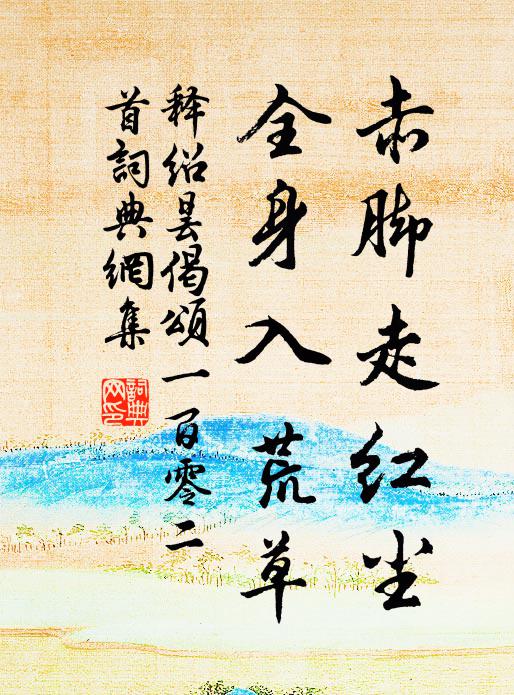 赤脚走红尘
全身入荒草
释绍昙偈頌一百零二
首詞典網集
詞典
网印